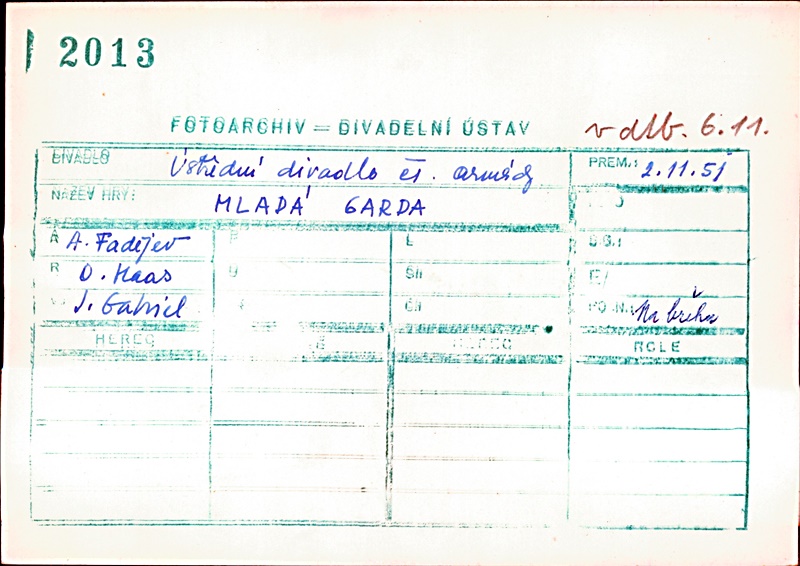 2013
FOTOARCHIV = DIVADELNÍ ÚSTAV
v dtb. 6.11.
DIVADLO Ústřední divadlo čs. armády PREM.: 2.11.51
NÁZEV HRY: MLADÁ GARDA
A A. Fadějev P L
R O. Haas Š/I
J. Gabriel Č/I Na břehu
HEREC HEREC ROLE